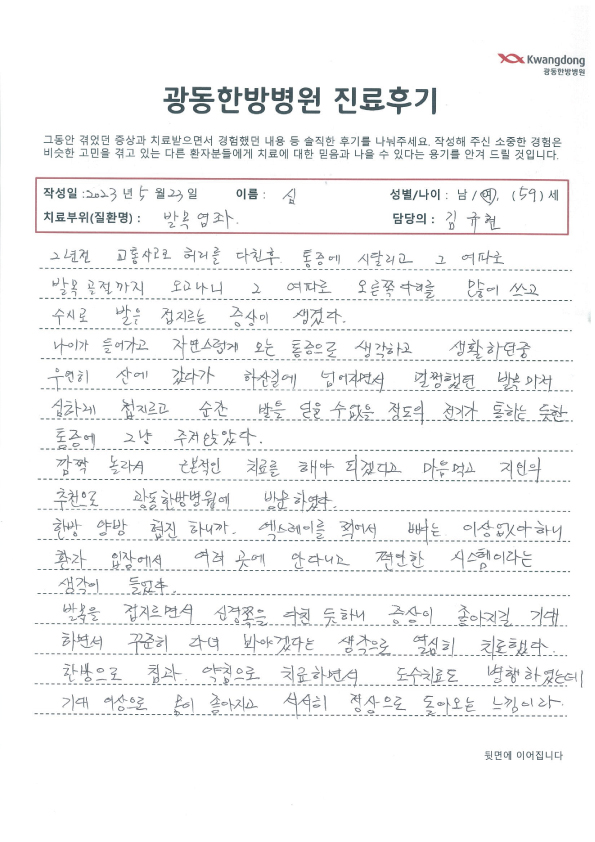 Kwangdong
광동한방병원
광동한방병원 진료후기
그동안 겪었던 증상과 치료받으면서 경험했던 내용 등 솔직한 후기를 나눠주세요. 작성해 주신 소중한 경험은
비슷한 고민을 겪고 있는 다른 환자분들에게 치료에 대한 믿음과 나을 수 있다는 용기를 안겨 드릴 것입니다.
작성일 : 2023 년 5 월 23 일 이름 : 심 성별/나이 : 남 / 여, ( 59 ) 세
치료부위(질환명) : 발목염좌. 담당의 : 김규현
2년전 교통사고로 허리를 다친후. 통증에 시달리고 그 여파로
발목골절까지 오고나니 그 여파로 오른쪽 다리를 많이 쓰고
수시로 발을 접지르는 증상이 생겼다.
나이가 들어가고 자연스럽게 오는 통증으로 생각하고 생활하던중
우연히 산에 갔다가 하산길에 넘어지면서 멀쩡했던 발목마저
심하게 접지르고 순간 발을 딛을 수 없을 정도의 전기가 통하는 듯한
통증에 그냥 주저앉았다.
깜짝 놀라서 근본적인 치료를 해야 되겠다고 마음먹고 지인의
추천으로 광동한방병원에 방문하였다.
한방 양방 협진 하니까. 엑스레이를 찍어서 뼈는 이상없다하니
환자 입장에서 여러 곳에 안다니고 편안한 시스템이라는
생각이 들었다.
발목을 접지르면서 신경쪽을 다친 듯하니 증상이 좋아지길 기대
하면서 꾸준히 다녀 봐야겠다는 생각으로 열심히 치료했다.
한방으로 침과. 약침으로 치료하면서 도수치료도 병행하였는데
기대 이상으로 몸이 좋아지고 서서히 정상으로 돌아오는 느낌이라.
뒷면에 이어집니다